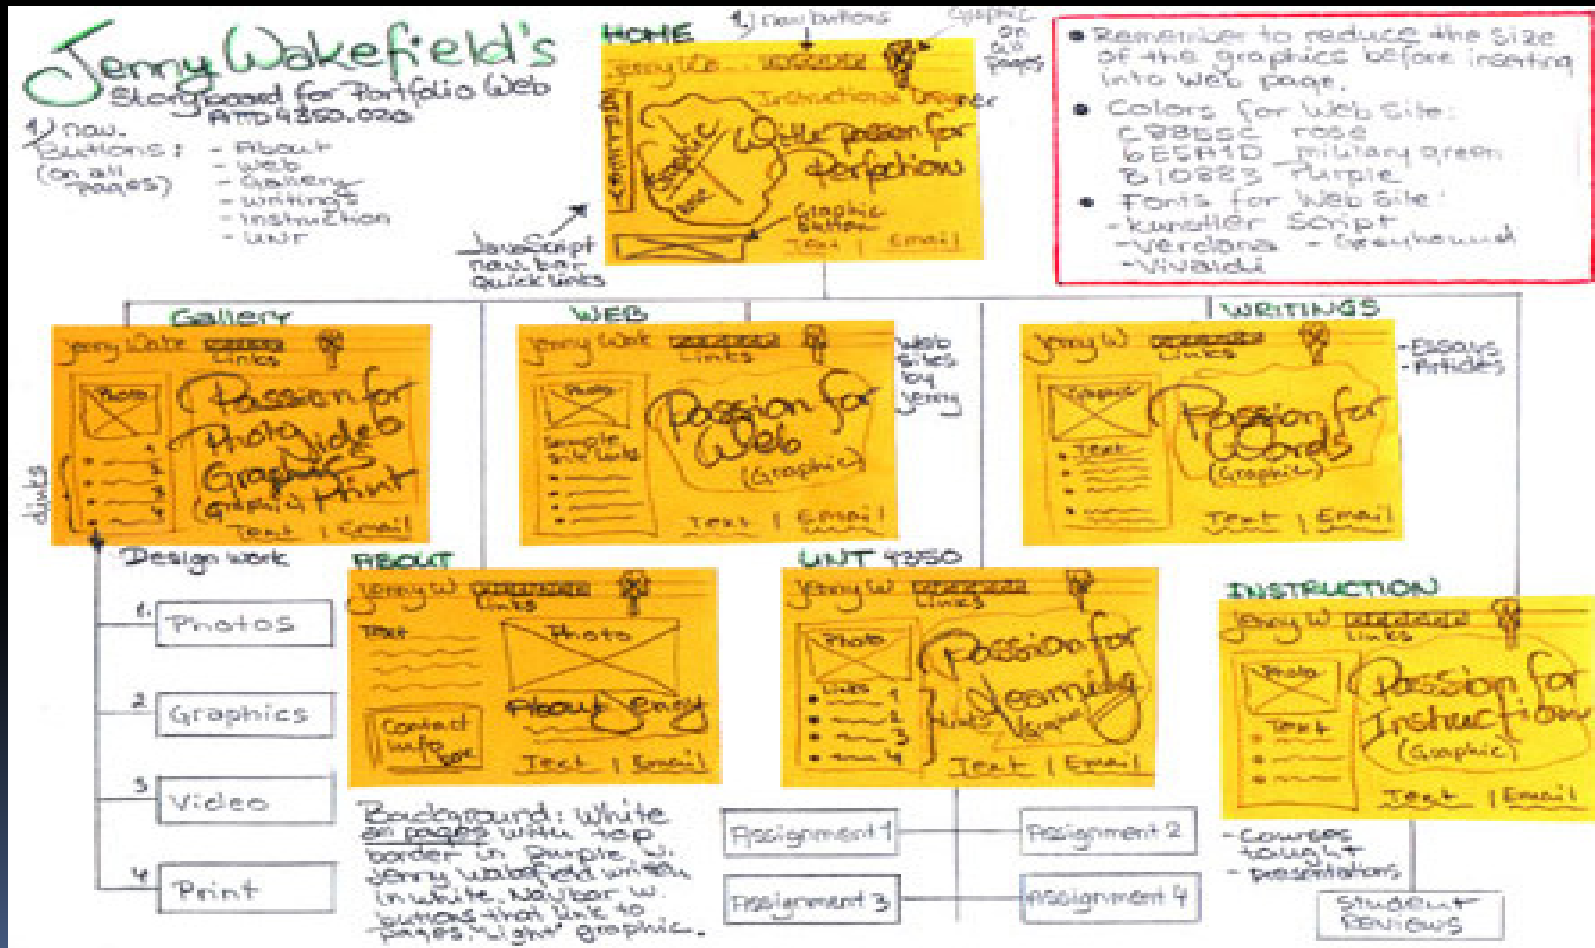 Jenny Wakefield's
Storyboard for Portfolio Web
ATTD 4350.020
1) nav.
Buttons:
(on all
pages)
- About
- Web
- Gallery
- Writings
- Instruction
- UNT
HOME
1) nav buttons
Graphic
on
all
pages
Jenny We
Instructional Designer
With Passion for
Perfection
Graphic
Graphic
Button
Text | Email
JavaScript
nav. bar
quick links
• Remember to reduce the size
of the graphics before inserting
into Web page.
• Colors for Web Site:
rose
6E5A1D military green
B10883 Purple
• Fonts for Web Site:
- Kunstler Script
- Verdana - Greyhound
- Vivaldi
Gallery
Jenny Wake
Links
Photo
Passion for
Photo
Video
Graphics
(Graphic) Print
Text | Email
Links
Design work
1. Photos
2 Graphics
3 Video
4 Print
WEB
Jenny Wake
Links
Photo
Sample
Site Links
Passion for
Web
(Graphic)
Text | Email
Web
sites
by
Jenny
WRITINGS
Jenny W
Links
Graphic
Text
Passion for
Words
(Graphic)
Text | Email
- Essays
- Articles
ABOUT
Jenny W
Links
Text
Photo
About Jenny
Contact
info
box
Text | Email
Background: White
on pages with top
border in Purple w.
Jenny Wakefield written
in white. Navbar w.
buttons that link to
pages. "Light" graphic.
UNT 4350
Jenny W
Links
Photo
Links
1
2
3
4
Links
Passion for
Learning
Text | Email
Assignment 1
Assignment 2
Assignment 3
Assignment 4
INSTRUCTION
Jenny W
Links
Photo
Text
Passion for
Instruction
(Graphic)
Text | Email
- Courses
taught
- presentations
Student
Reviews